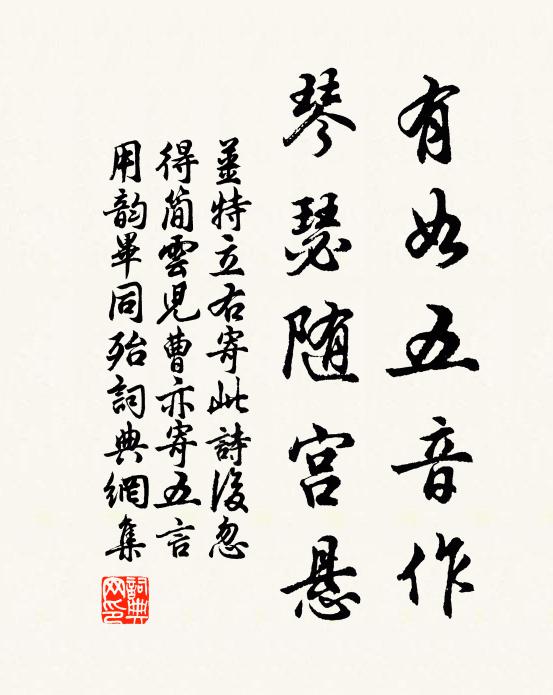 有如五音作
琴瑟随宫悬
姜特立右寄此詩後忽
得简雲児曹亦寄五言
用韵畢同殆詞典網集
詞典网印